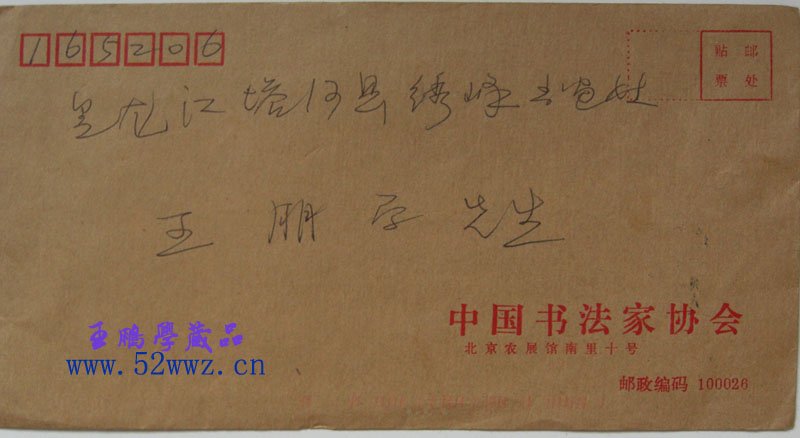 165206
贴邮
票处
黑龙江塔河县绣峰
王朋学先生
中国书法家协会
北京农展馆南里十号
邮政编码 100026
王鹏學藏品
www.52wwz.cn